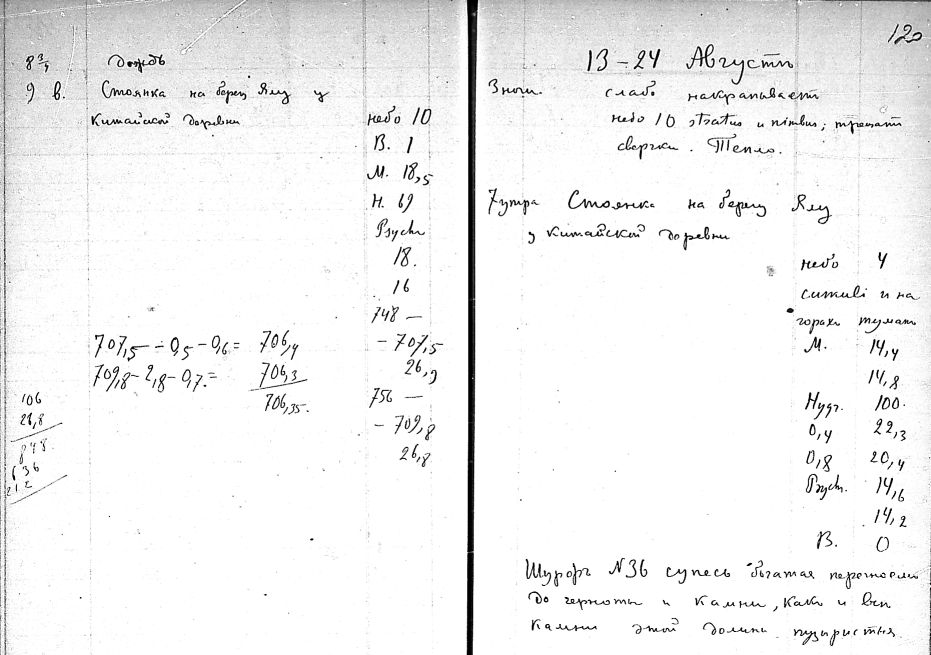 8 3/4 Дождь
9 в. Стоянка на берегу Ялу у
Китайской деревни
небо 10
В. 1
М. 18,5
Н. 69
Psychr
18.
16
748 —
707,5 - 0,5 - 0,6 = 706,4
- 707,5
26,9
709,8 - 2,8 - 0,7. = 706,3
706,35.
756 —
- 709,8
26,8
106
26,8
848
636
212
120
13-24 Августъ
3 ночи. слабо накрапываетъ
небо 10 stratus и nimbus; трещатъ
сверчки. Тепло.
7 утра Стоянка на берегу Ялу
у Китайской деревни
небо 4
и на
горахъ туманъ
М. 14,4
14,8
Hygr. 100.
0,4 22,3
0,8 20,4
Psych. 14,6
14,2
В. 0
Шурфъ N36 супесь богатая перегноемъ
до черноты и камни, какъ и все
камни этой долины пузыристыя.